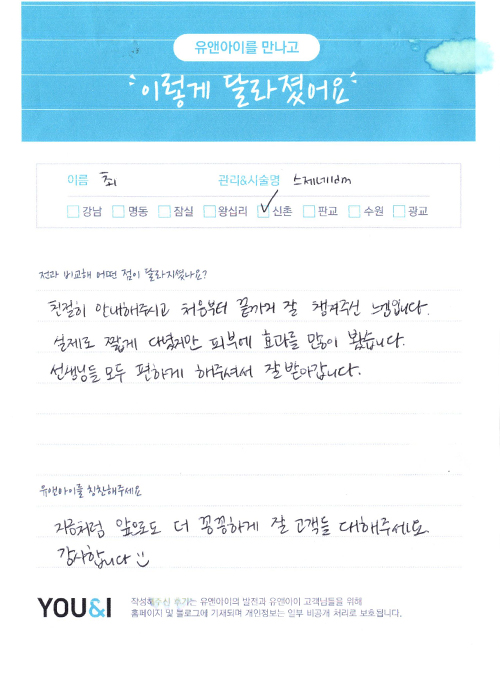 유앤아이를 만나고
이렇게 달라졌어요
이름 최 관리&시술명 스제네brm
강남 명동 잠실 왕십리 신촌 판교 수원 광교
전과 비교해 어떤 점이 달라지셨나요?
친절히 안내해주시고 처음부터 끝까지 잘 챙겨주신 느낌입니다.
실제로 짧게 다녔지만 피부에 효과를 많이 봤습니다.
선생님들 모두 편하게 해주셔서 잘 받아갑니다.
유앤아이를 칭찬해주세요
지금처럼 앞으로도 더 꽁꽁하게 잘 고객들 대해주세요.
감사합니다
YOU&I
작성해주신 후기는 유앤아이의 발전과 유앤아이 고객님들을 위해
홈페이지 및 블로그에 기재되며 개인정보는 일부 비공개 처리로 보호됩니다.